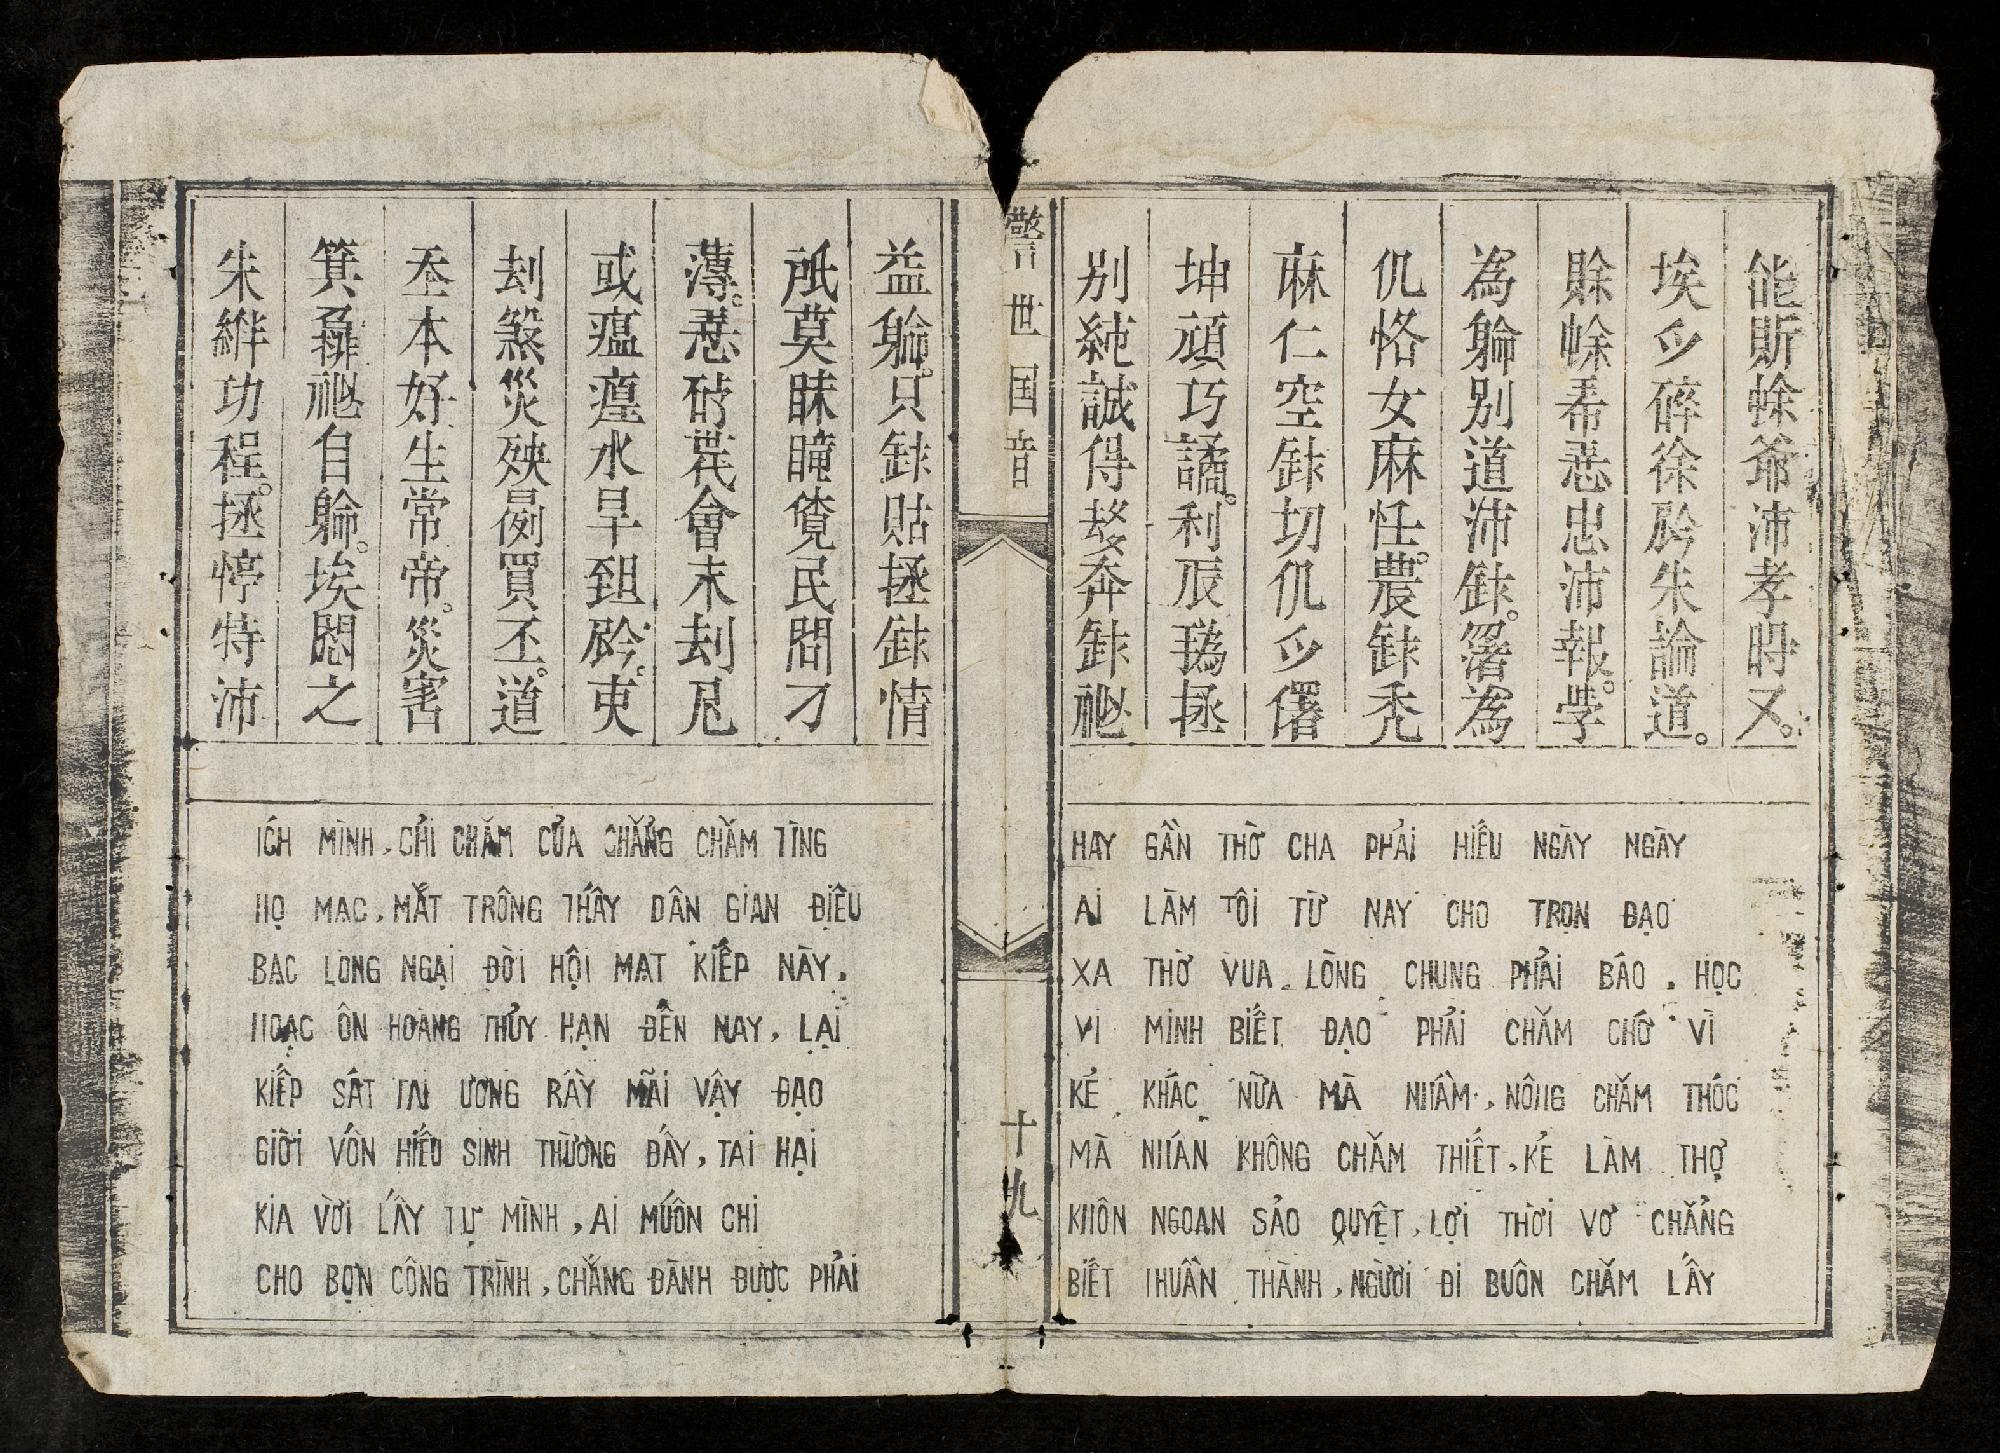 能蜍爺沛孝又。
埃碎徐朱論道。
賒蜍忠沛報。學
為別道沛為
仉恪女麻任。農禿
麻仁空切仉
坤頑巧譎。利辰拯
別純誠得奔祕
HAY GẦN THỜ CHA PHẢI HIẾU NGÀY NGÀY
AI LÀM TÔI TỪ NAY CHO TRỌN ĐẠO
XA THỜ VUA LÒNG CHUNG PHẢI BÁO, HỌC
VÌ MÌNH BIẾT ĐẠO PHẢI CHĂM CHỚ VÌ
KẺ KHÁC NỮA MÀ NHẦM, NÔNG CHĂM THÓC
MÀ NHÁN KHÔNG CHĂM THIẾT, KẺ LÀM THỢ
KHÔN NGOAN SẢO QUYỆT, LỢI THỜI VƠ CHẲNG
BIẾT THUẦN THÀNH, NGƯỜI ĐI BUÔN CHĂM LẤY
警世国音
十九
益。只貼拯情
莫眜民間刁
薄。會末刦尼
或瘟瘴水旱。吏
刦煞災殃買丕。道
本好生常帝。災害
箕祕自。埃悶之
朱絆功程。拯停特沛
ÍCH MÌNH, CHỈ CHĂM CỦA CHẲNG CHĂM TÌNG
HỌ MẠC, MẮT TRÔNG THẤY DÂN GIAN ĐIÊU
BẠC LÒNG NGẠI ĐỜI HỘI MẠT KIẾP NÀY,
HOẶC ÔN HOÀNG THỦY HẠN ĐẾN NAY, LẠI
KIẾP SÁT TAI ƯƠNG RÀY MÃI VẬY ĐẠO
GIỜI VỐN HIẾU SINH THƯỜNG ĐẤY, TAI HẠI
KIA VỜI LẤY TỰ MÌNH, AI MUỐN CHI
CHO BỌN CÔNG TRÌNH, CHẲNG ĐÀNH ĐƯỢC PHẢI